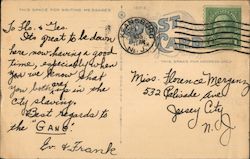 THIS SPACE FOR WRITING MESSAGES
POST CARD
THIS SPACE FOR ADDRESS ONLY
To Flo & Tes.
Its great to be down
here now having a good
time, especially when
you we know that
you both are up in the
city slaving.
Best regards to
the "GANG".
Ev. & Frank
Miss. Florence
532 Palisade Ave
Jersey City
N. J.